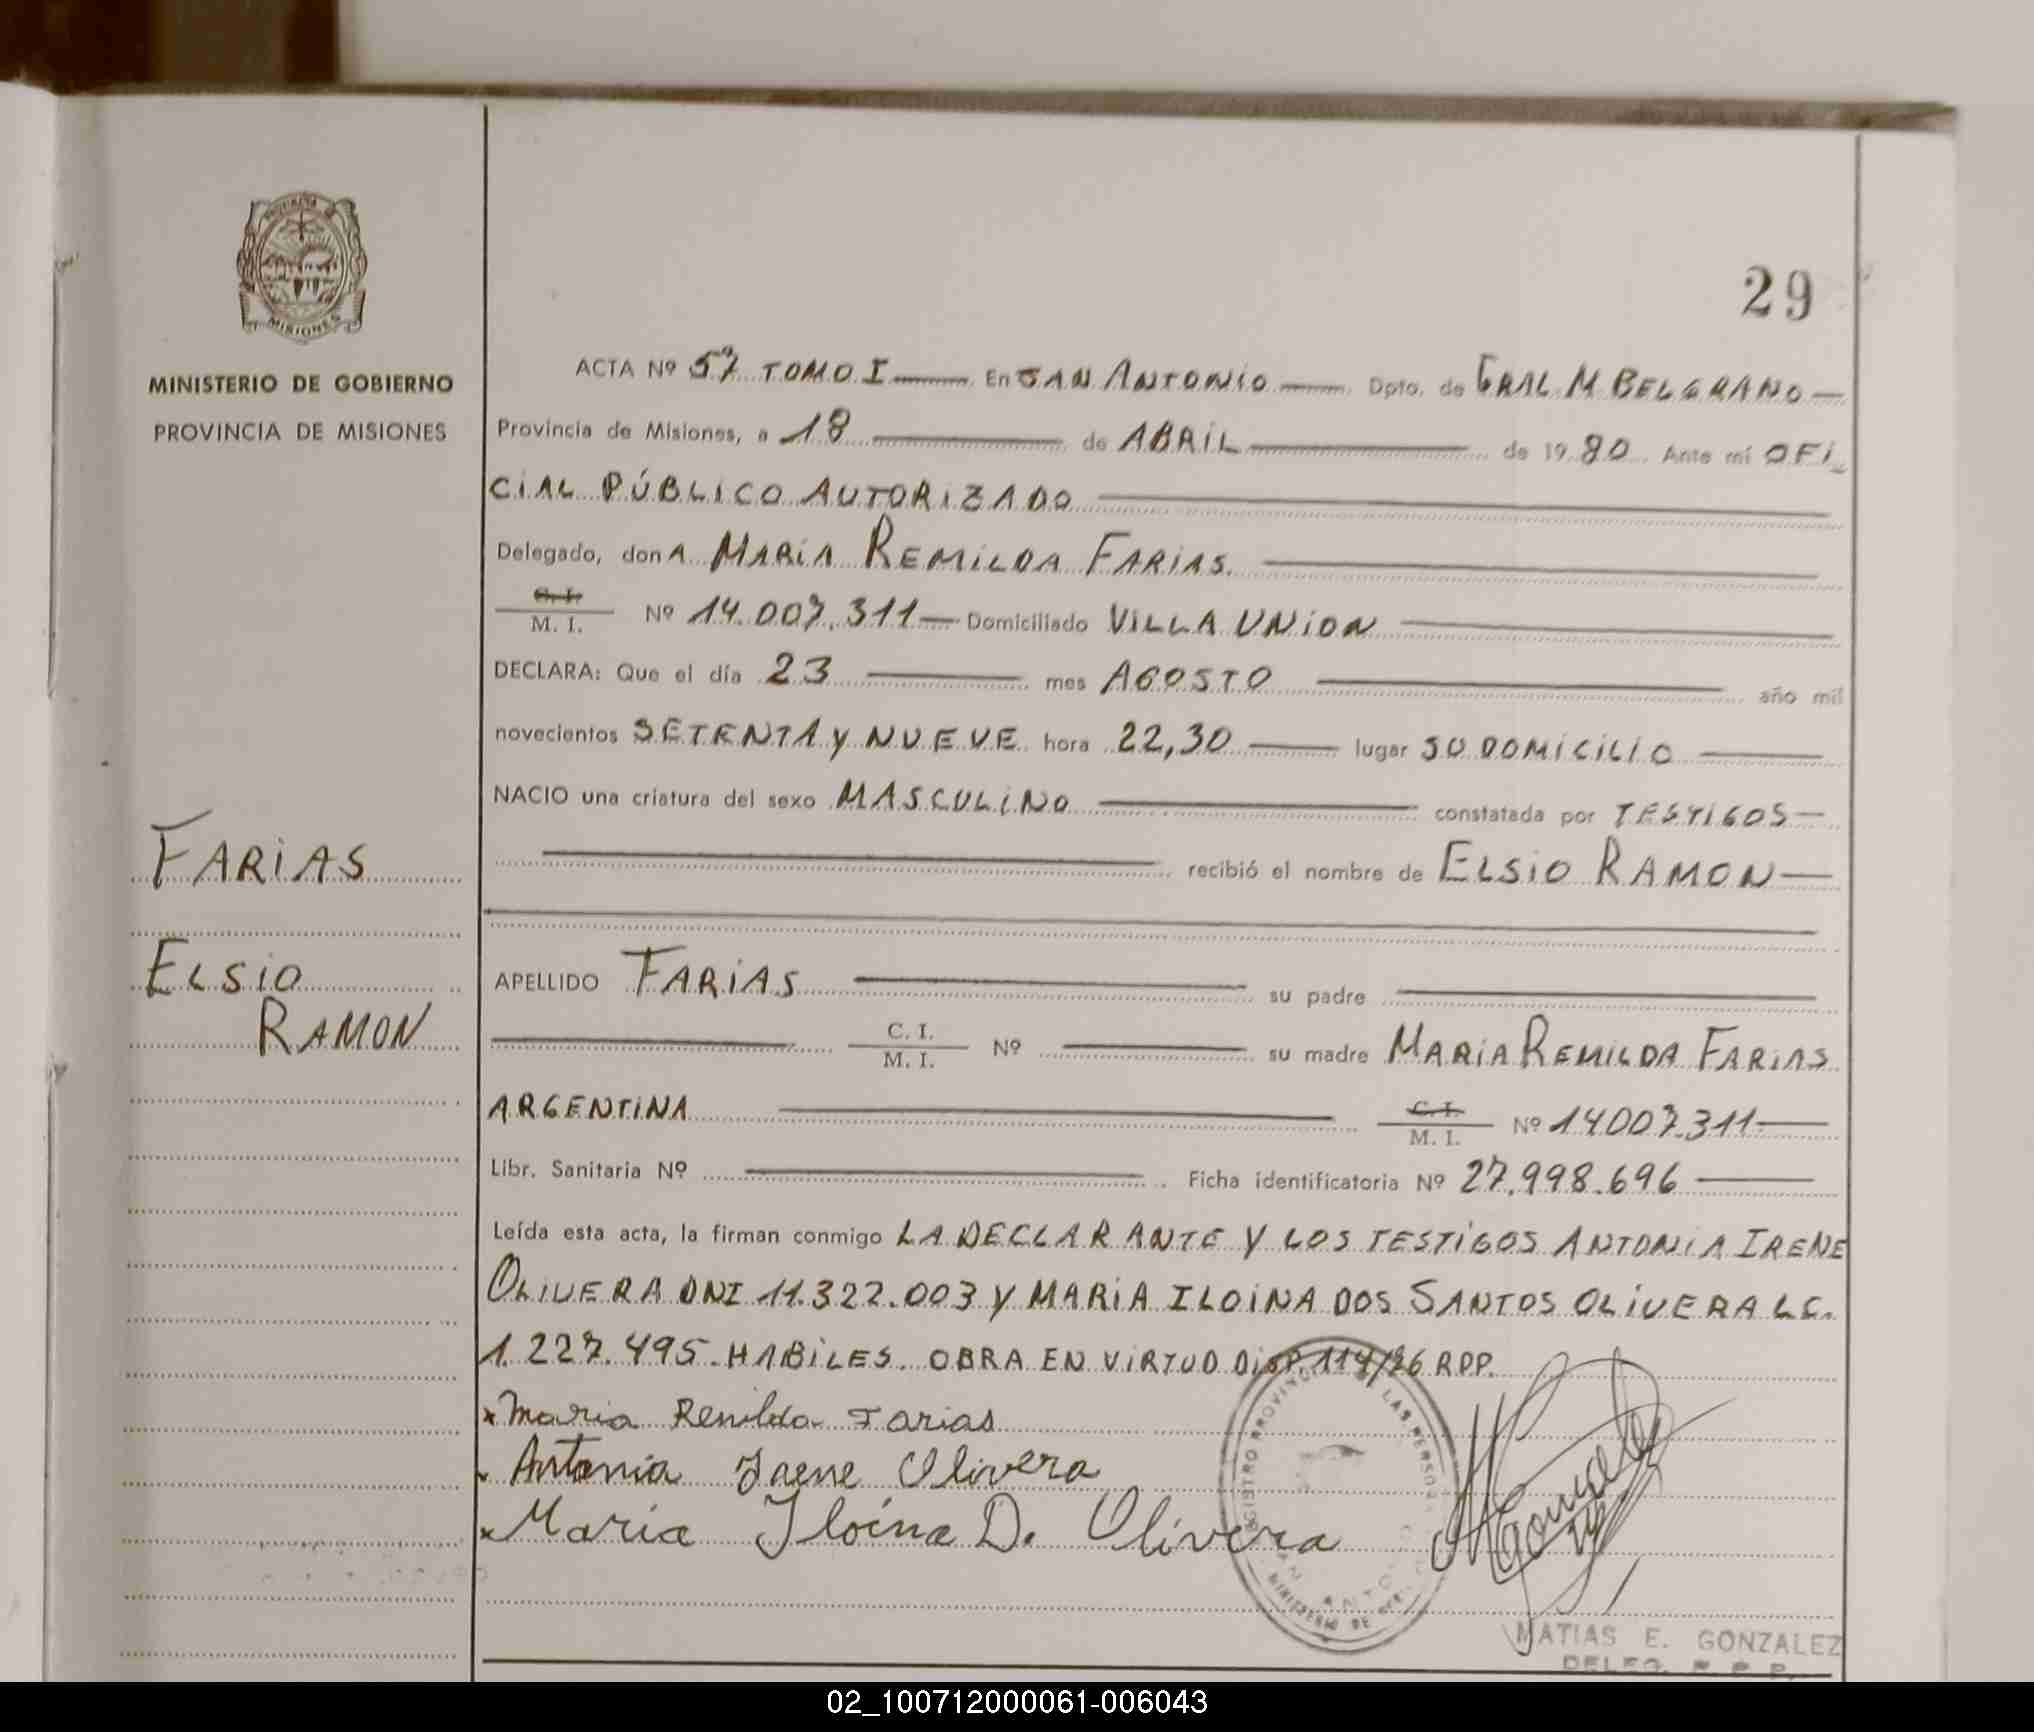 29
MISIONES
MINISTERIO DE GOBIERNO
PROVINCIA DE MISIONES
FARIAS
ELSIO
RAMON
ACTA Nº 57 TOMO I En SAN ANTONIO Dpto. de GRAL M BELGRANO
Provincia de Misiones, a 18 de ABRIL de 1980 Ante mí OFI
CIAL PÚBLICO AUTORIZADO
Delegado, don A MARIA REMILDA FARIAS.
C. I.
M. I. Nº 14.007.311 Domiciliado VILLA UNION
DECLARA: Que el día 23 mes AGOSTO año mil
novecientos SETENTA y NUEVE hora 22,30 lugar SU DOMICILIO
NACIO una criatura del sexo MASCULINO constatada por TESTIGOS
recibió el nombre de ELSIO RAMON
APELLIDO FARIAS su padre
C. I.
M. I. Nº su madre MARIA REMILDA FARIAS
ARGENTINA C. I.
M. I. Nº 14007.311
Libr. Sanitaria Nº Ficha identificatoria Nº 27.998.696
Leída esta acta, la firman conmigo LA DECLARANTE Y LOS TESTIGOS ANTONIA IRENE
OLIVERA DNI 11.322.003 y MARIA ILOINA DOS SANTOS OLIVERA LC.
1.227.495. HABILES. OBRA EN VIRTUD DISP. 114/ RPP.
x Maria Remilda Farias
Antonia Irene Olivera
x Maria Iloina D. Olivera
REGISTRO PROVINCIAL LAS PERSONAS
MINISTERIO DE
Gonzalez
MATIAS E. GONZALEZ
DELEG. R. P. P.
02_100712000061-006043